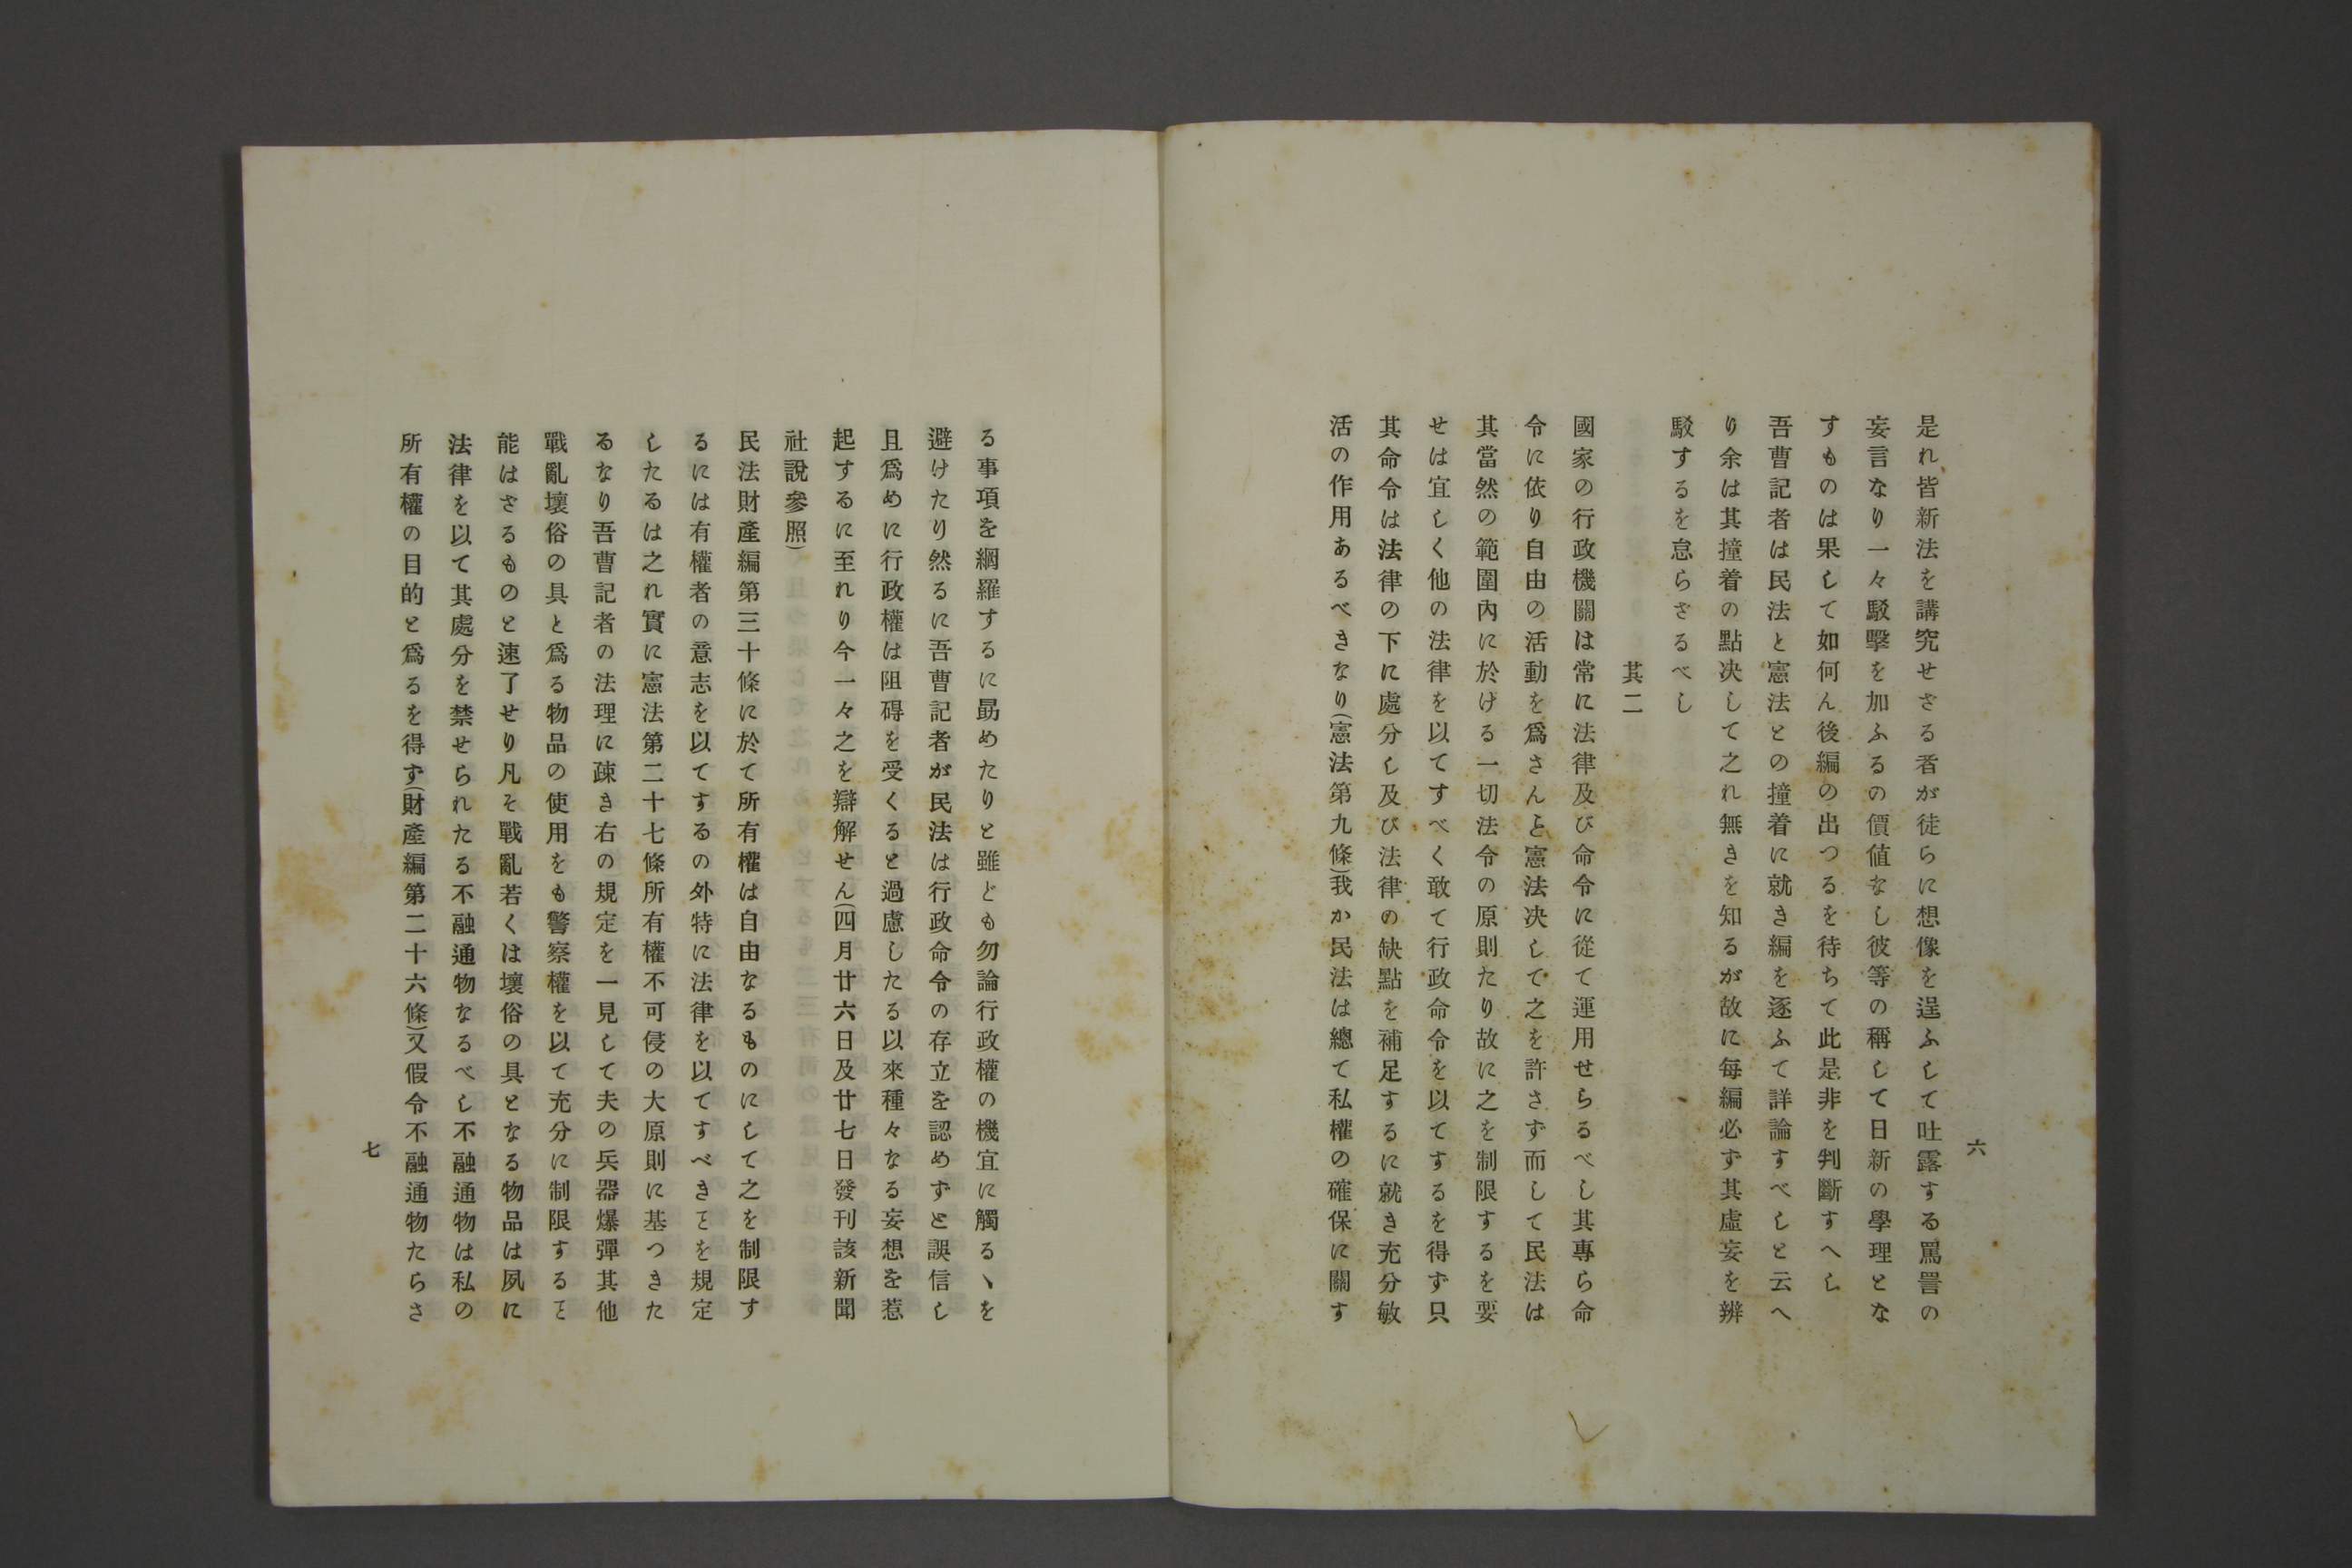 六
是れ皆新法を講究せざる者が徒らに想像を逞ふして吐露する罵詈の
妄言なり一々駁擊を加ふるの價値なし彼等の稱して日新の學理とな
すものは果して如何ん後編の出つるを待ちて此是非を判斷すへし
吾曹記者は民法と憲法との撞着に就き編を逐ふて詳論すべしと云へ
り余は其撞着の點决して之れ無きを知るが故に每編必ず其虛妄を辨
駁するを怠らざるべし
其二
國家の行政機關は常に法律及び命令に從て運用せらるべし其專ら命
令に依り自由の活動を爲さんと憲法决して之を許さず而して民法は
其當然の範圍內に於ける一切法令の原則たり故に之を制限するを要
せは宜しく他の法律を以てすべく敢て行政命令を以てするを得ず只
其命令は法律の下に處分し及び法律の缺點を補足するに就き充分敏
活の作用あるべきなり(憲法第九條)我か民法は總て私權の確保に關す
る事項を網羅するに勗めたりと雖ども勿論行政權の機宜に觸るゝを
避けたり然るに吾曹記者が民法は行政命令の存立を認めずと誤信し
且爲めに行政權は阻碍を受くると過慮したる以來種々なる妄想を惹
起するに至れり今一々之を辯解せん(四月廿六日及廿七日發刊該新聞
社說參照)
民法財產編第三十條に於て所有權は自由なるものにして之を制限す
るには有權者の意志を以てするの外特に法律を以てすべきヿを規定
したるは之れ實に憲法第二十七條所有權不可侵の大原則に基つきた
るなり吾曹記者の法理に疎き右の規定を一見して夫の兵器爆彈其他
戰亂壞俗の具と爲る物品の使用をも警察權を以て充分に制限するヿ
能はざるものと速了せり凡そ戰亂若くは壞俗の具となる物品は夙に
法律を以て其處分を禁せられたる不融通物なるべし不融通物は私の
所有權の目的と爲るを得ず(財產編第二十六條)又假令不融通物たらさ
七